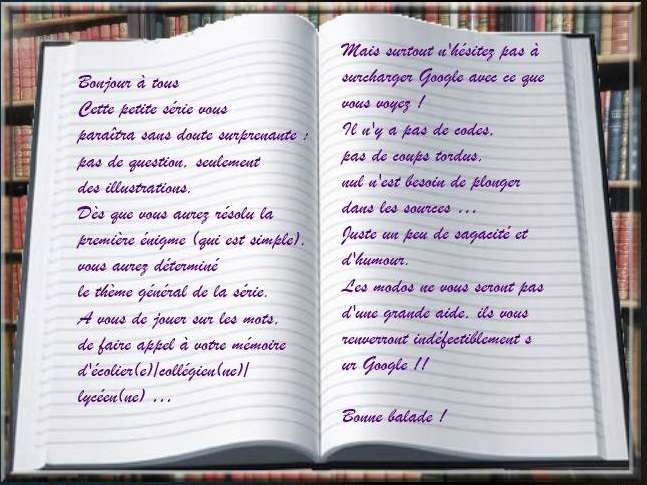 Bonjour à tous
Cette petite série vous
paraîtra sans doute surprenante :
pas de question, seulement
des illustrations.
Dès que vous aurez résolu la
première énigme (qui est simple),
vous aurez déterminé
le thème général de la série.
A vous de jouer sur les mots,
de faire appel à votre mémoire
d'écolier(e)|collégien(ne)|
lycéen(ne) ...
Mais surtout n'hésitez pas à
surcharger Google avec ce que
vous voyez !
Il n'y a pas de codes,
pas de coups tordus,
nul n'est besoin de plonger
dans les sources ...
Juste un peu de sagacité et
d'humour.
Les modos ne vous seront pas
d'une grande aide, ils vous
renverront indéfectiblement s
ur Google !!
Bonne balade !